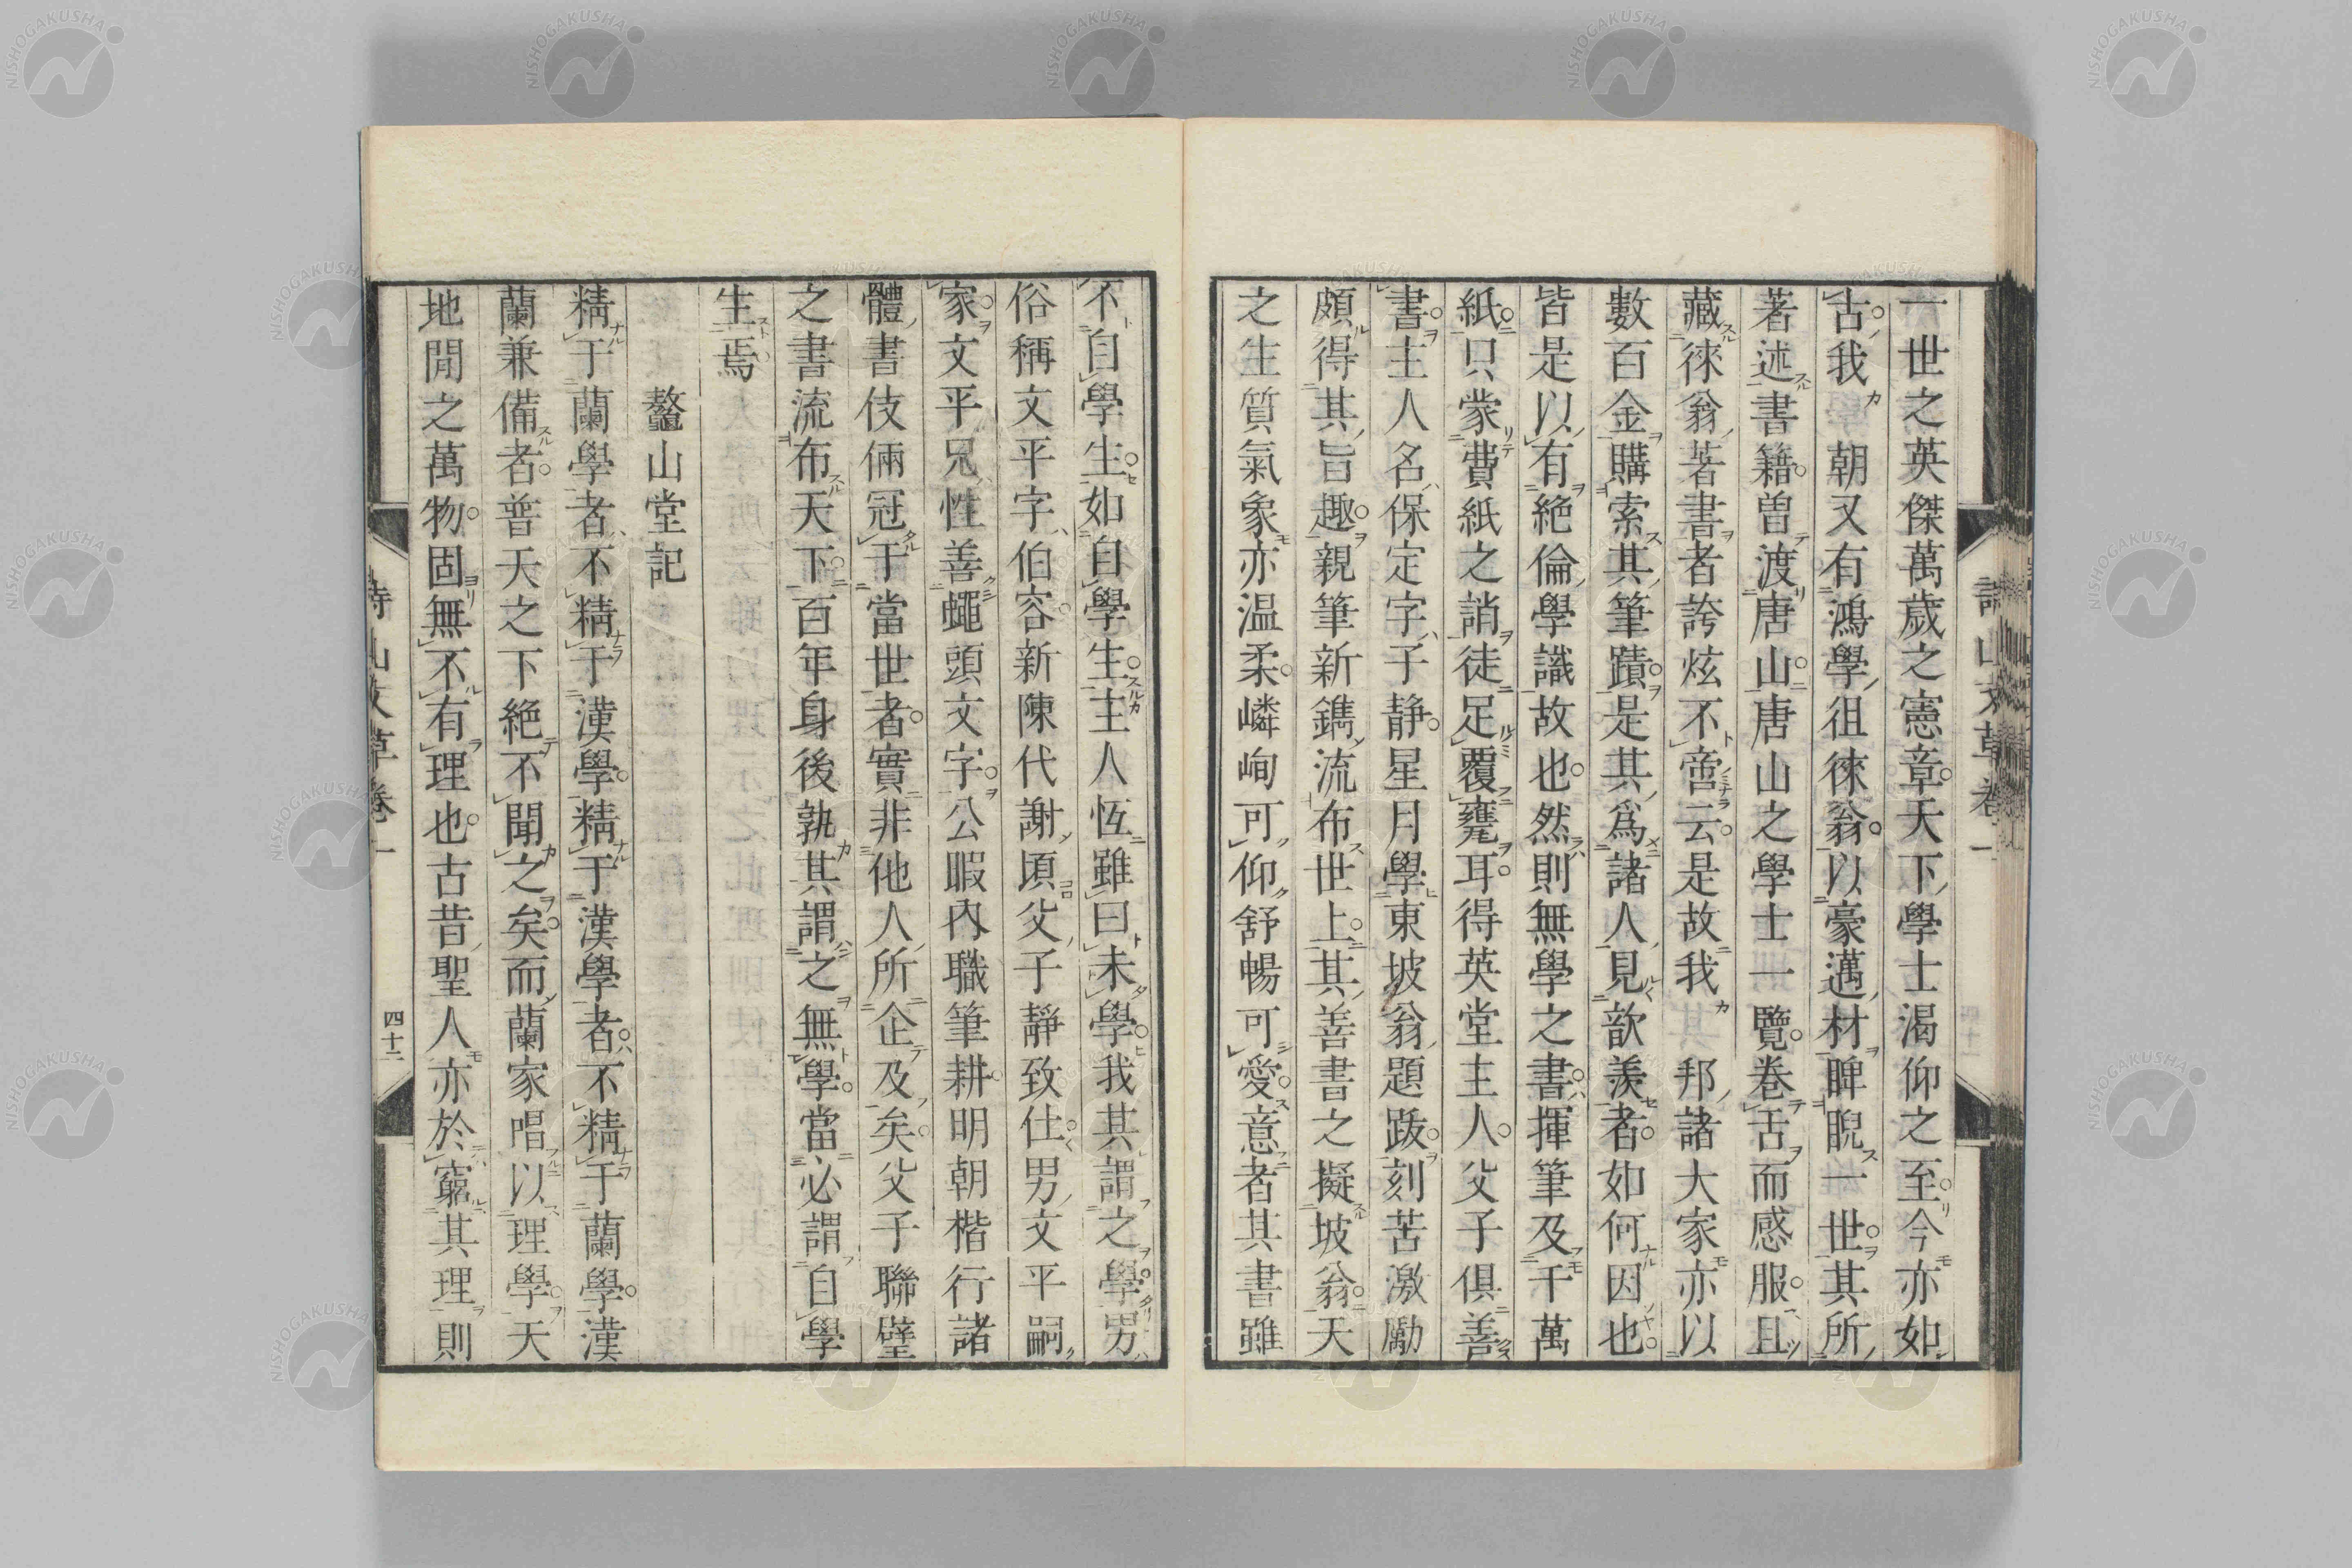 一世之英傑萬歲之憲章天下學士渴仰之至今亦如
古我 朝又有鴻學徂徠翁以豪邁材睥睨一世其所
著述書籍曽渡唐山唐山之學士一覽卷舌而感服且
藏徠翁著書者誇炫不啻云是故我 邦諸大家亦以
數百金購索其筆蹟是其爲諸人見歆羨者如何因也
皆是以有絕倫學識故也然則無學之書揮筆及千萬
紙只蒙費紙之誚徒足覆甕耳得英堂主人父子俱善
書主人名保定字子静星月學東坡翁題跋刻苦激勵
頗得其旨趣親筆新鐫流布世上其善書之擬坡翁天
之生質氣象亦温柔嶙峋可仰舒暢可愛意者其書雖
不自學生如自學生主人恆雖曰未學我其謂之學男
俗稱文平字伯容新陳代謝頃父子靜致仕男文平嗣
家文平兄性善蠅頭文字公暇內職筆耕明朝楷行諸
體書伎倆冠于當世者實非他人所企及矣父子聯璧
之書流布天下百年身後孰其謂之無學當必謂自學
生焉
鼇山堂記
精于蘭學者不精于漢學精于漢學者不精于蘭學漢
蘭兼備者普天之下絕不聞之矣而蘭家唱以理學天
地閒之萬物固無不有理也古昔聖人亦於窮其理則
四十二